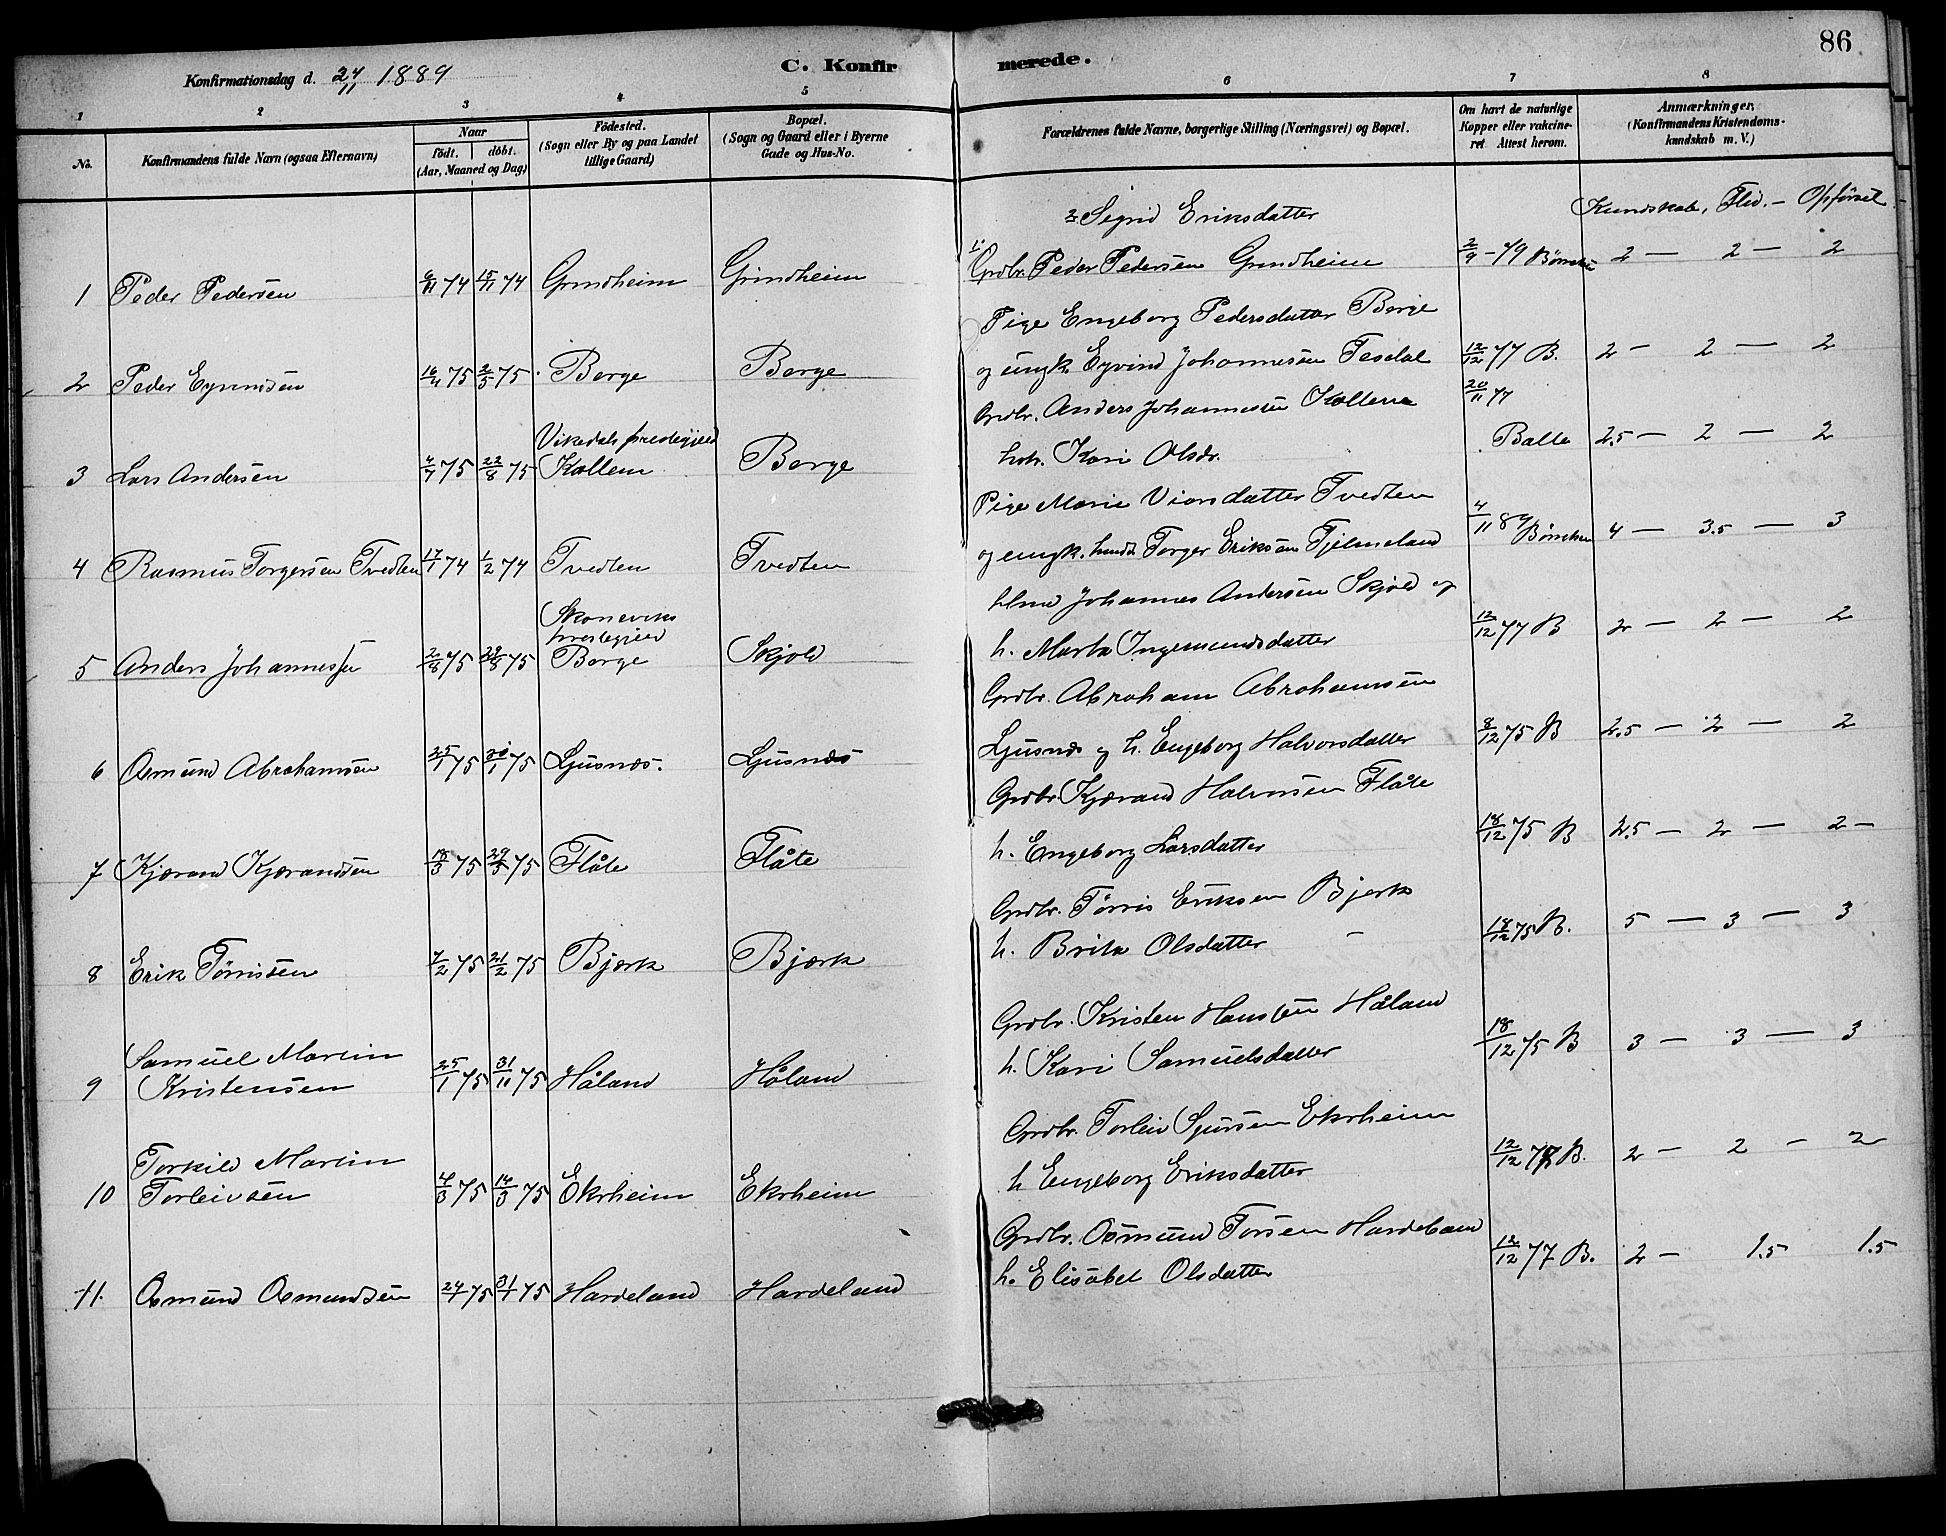 86
Konfirmationsdag d. 24/11 1889
C. Konfirmerede.
1 2 3 4 5 6 7 8
No.
Konfirmandens fulde Navn (ogsaa Efternavn)
Naar
födt. döbt.
(Aar, Maaned og Dag)
Födested.
(Sogn eller By og paa Landet
tillige Gaard)
Bopæl.
(Sogn og Gaard eller i Byerne
Gade og Hus-No.
Forældrenes fulde Navne, borgerlige Stilling (Næringsvei) og Bopæl.
Om havt de naturlige
Kopper eller vakcine-
ret Attest herom.
Anmærkninger.
(Konfirmandens Kristendoms-
kundskab m. V.)
Kundskab, Flid. — Opførsel
2. Sigrid Eriksdatter
1. Grdbr. Peder Pedersen Grindheim
2/9 - 79
2 — 2 — 2
1 Peder Pedersen 6/11 74 15/11 74 Grindheim Grindheim
Pige Engeborg Pedersdatter Berge
og ungk. Eyvind Johannesen Tesdal
12/12 77 B. 2 — 2 — 2
2 Peder Eyvindsen 16/4 75 2/5 75 Berge Berge
Grdbr. Anders Johannesen Kallem
20/11 77
Vikedals prestegjeld
hstr. Kari Olsdr.
Balle 2.5 — 2 — 2
3 Lars Andersen 4/7 75 22/8 75 Kallem Berge
Pige Marie Viarsdatter Tvedten
og ungk. Torger Eriksen Tjelmeland
4 — 3.5 — 3
4 Rasmus Torgersen Tvedten 17/1 74 1/2 74 Tvedten Tvedten
Johannes Andersen Skjold og
Skoneviks
prestegjeld
h. Marta Ingemundsdatter
12/12 77 B 2 — 2 — 2
5 Anders Johannessen 2/8 75 29/8 75 Berge Skjold
Grdbr. Abraham Abrahamsen
Ljusnæs og h. Engeborg Halvorsdatter
8/12 75 B 2.5 — 2 — 2
6 Asmund Abrahamsen 25/1 75 75 Ljusnæs. Ljusnæs
Grdbr. Kjærand Halvorsen Flåte
h. Engeborg Larsdatter
18/12 75 B 2.5 — 2 — 2 —
7 Kjærand Kjærandsen 18/3 75 29/3 75 Flåte Flåte
Grdbr. Tørris Eriksen Bjerk
h. Brita Olsdatter
18/12 75 B. 5 — 3 — 3
8 Erik Tørrissen 7/2 75 21/2 75 Bjerk Bjærk
Grdbr. Kristen Hansen Håland
h. Kari Samuelsdatter
18/12 75 B 3 — 3 — 3
Samuel Martin
9 Kristensen 25/1 75 31/11 75 Håland Håland
Grdbr. Torleiv Sjursen Ekrheim
h Engeborg Eriksdatter
12/12 77 B. 2 — 2 — 2
Torkild Martin
10 Torleivsen 4/3 75 14/3 75 Ekrheim Ekrheim
Grdbr. Asmund Torsen Hardeland
h. Elisabet Olsdatter
12/12 77 B. 2 — 1.5 1.5
11. Asmund Asmundsen 24/1 75 31/1 75 Hardeland Hardeland